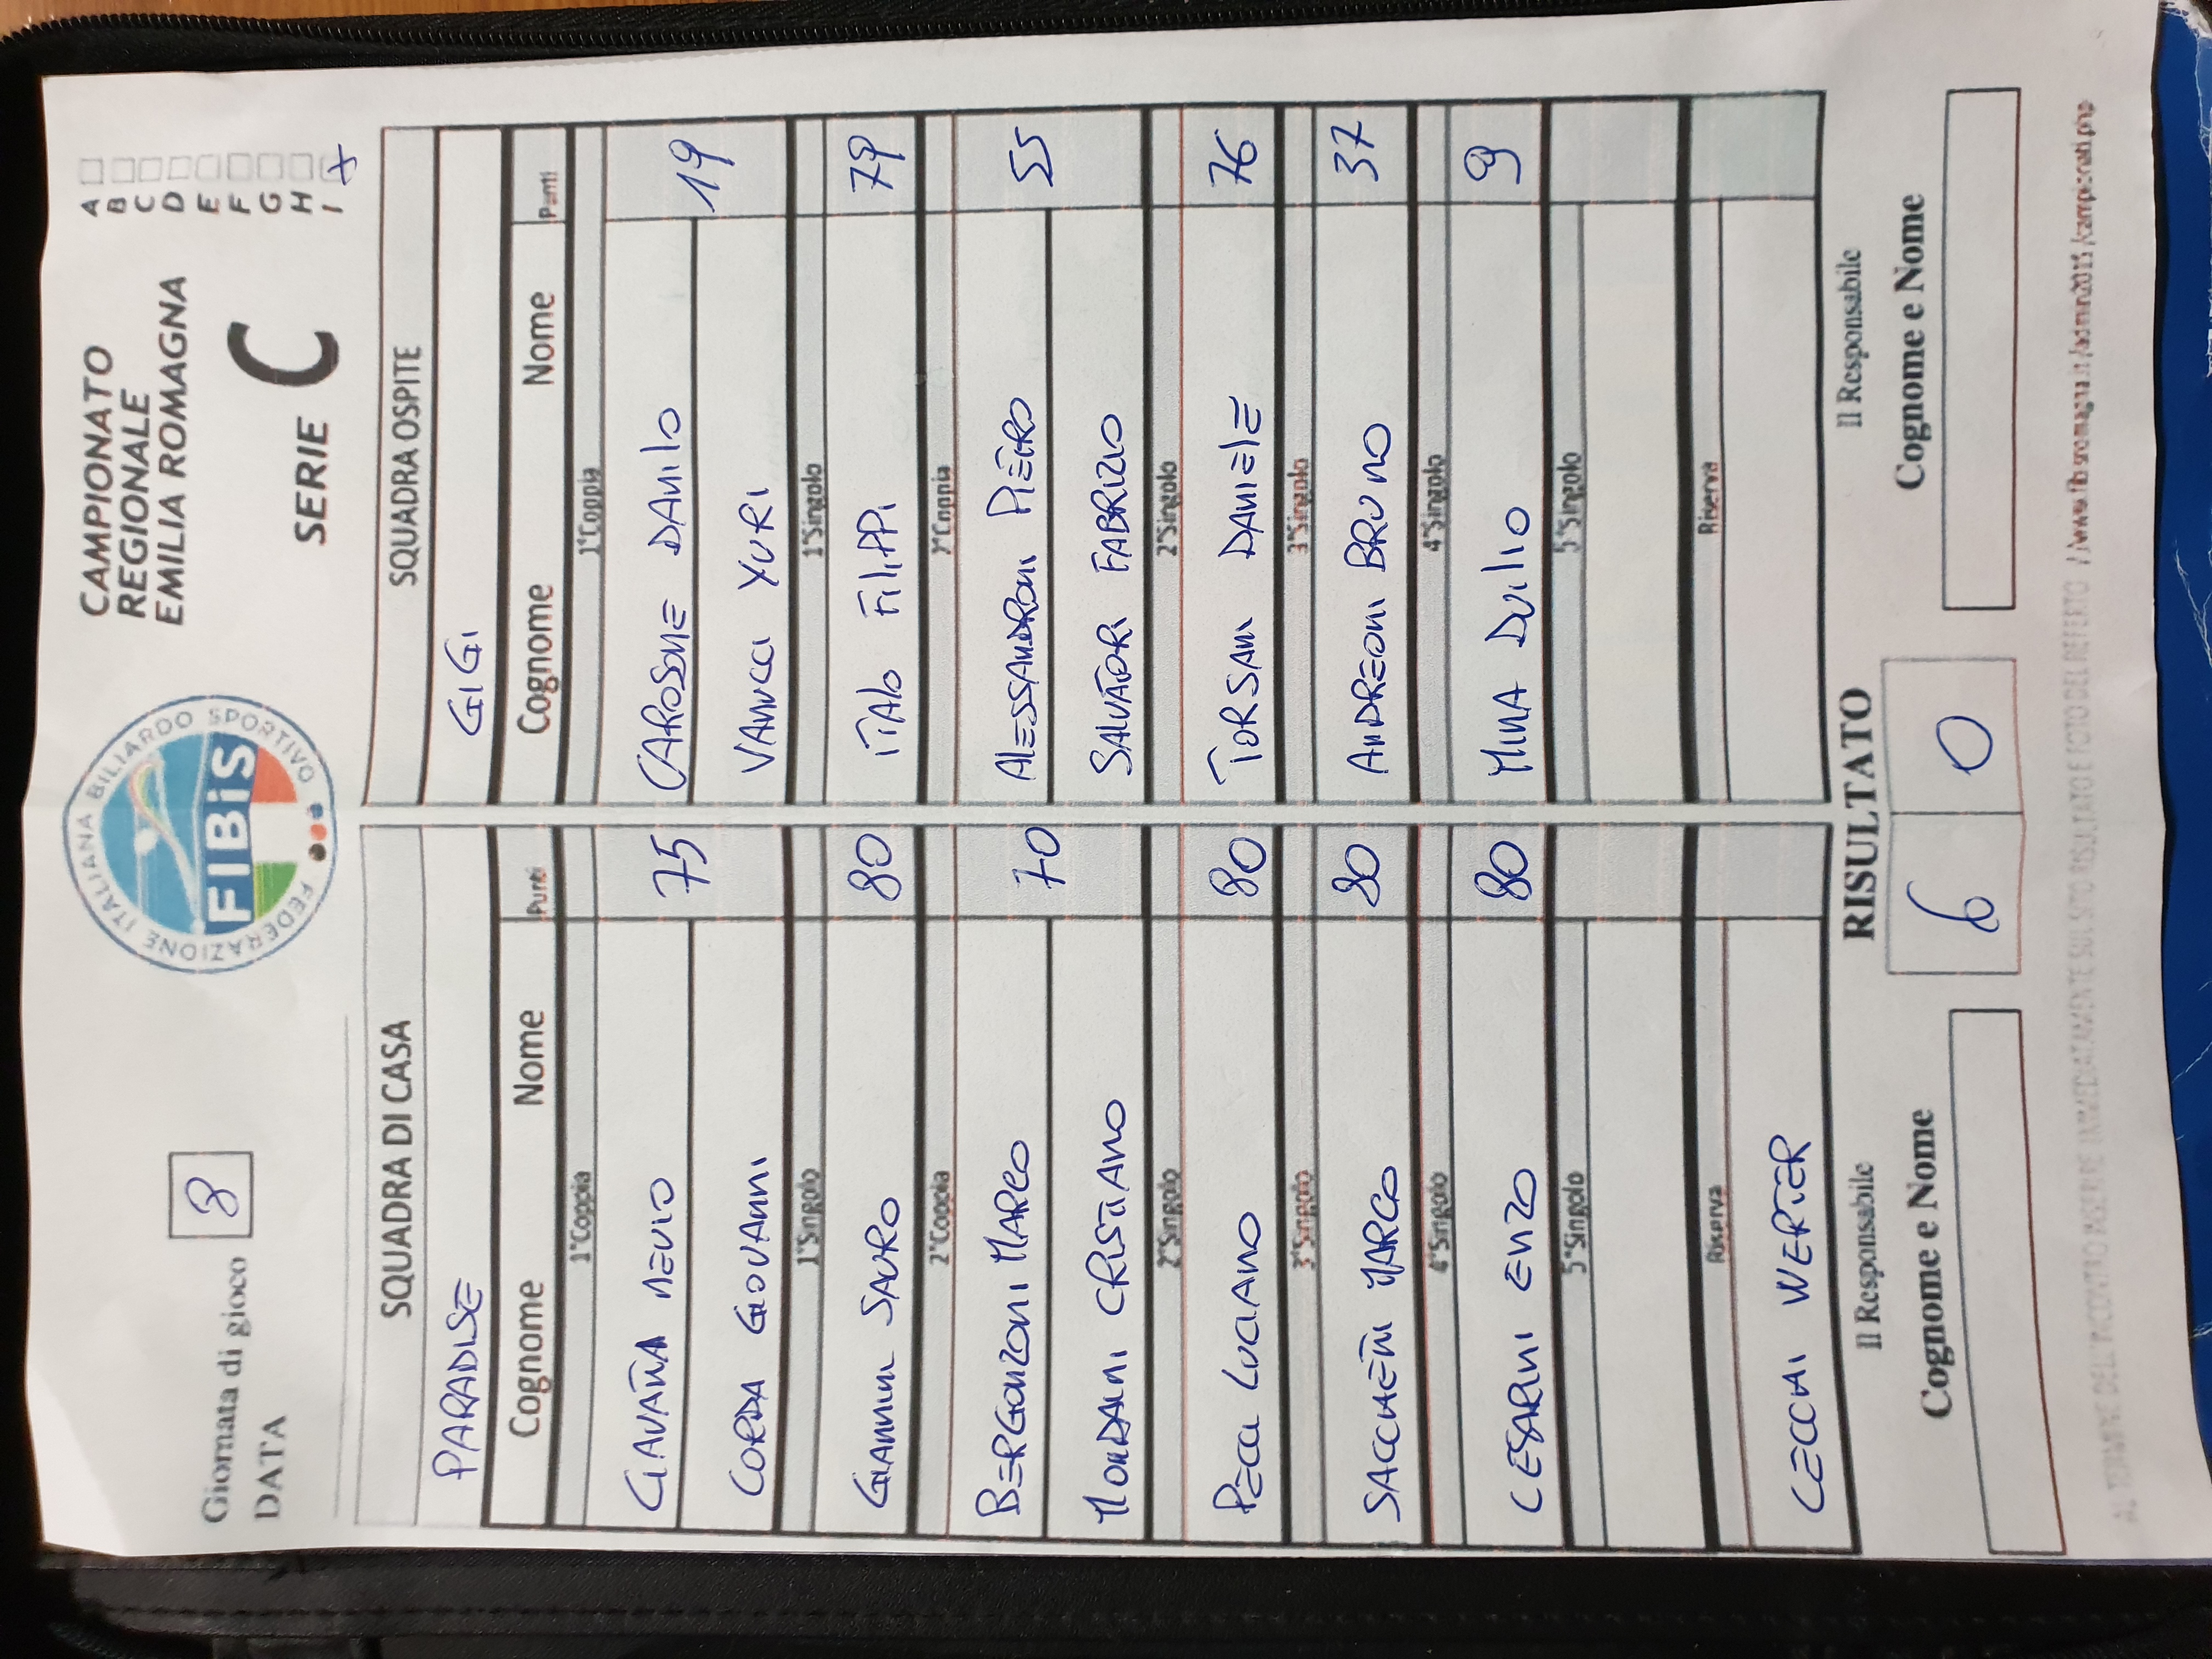 Giornata di gioco 8
DATA
FEDERAZIONE ITALIANA BILIARDO SPORTIVO
FIBiS
CAMPIONATO
REGIONALE
EMILIA ROMAGNA
SERIE C
A
B
C
D
E
F
G
H
I x
SQUADRA DI CASA SQUADRA OSPITE
PARADISE GIGI
Cognome Nome Punti Cognome Nome Punti
1°Coppia 1°Coppia
CIAVATTA NEVIO 75 CAROSONE DANILO 19
CORDA GIOVANNI VANUCCI YURI
1°Singolo 1°Singolo
GIANNINI SAURO 80 ITALO FILIPPI 79
2°Coppia 2°Coppia
BERGONZONI MARCO 70 ALESSANDRONI PIERO 55
MONDAINI CRISTIANO SALVATORI FABRIZIO
2°Singolo 2°Singolo
PECCI LUCIANO 80 TORSANI DANIELE 76
3°Singolo 3°Singolo
SACCHETTI MARCO 80 ANDREONI BRUNO 37
4°Singolo 4°Singolo
CESARINI ENZO 80 MINA DUILIO 9
5°Singolo 5°Singolo
Riserva Riserva
CECCHI WERTER
RISULTATO
6 0
Il Responsabile Il Responsabile
Cognome e Nome Cognome e Nome
AL TERMINE DELL'INCONTRO INSERIRE IMMEDIATAMENTE SUL SITO RISULTATO E FOTO DEL REFERTO